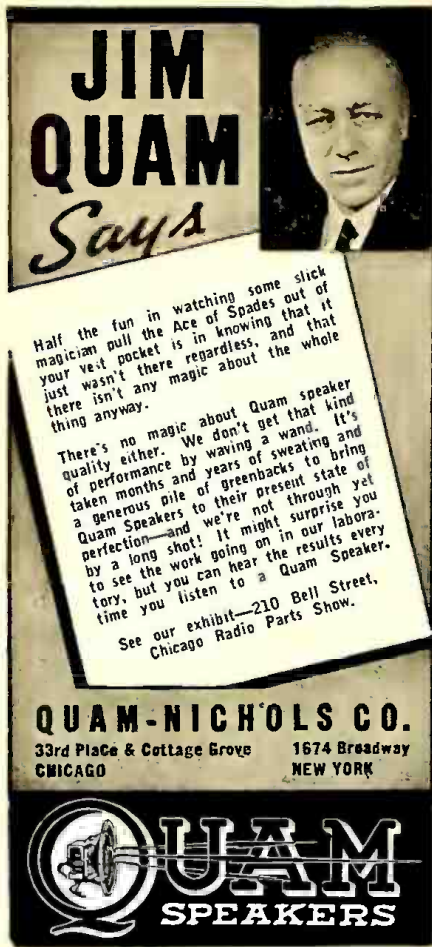 JIM
QUAM
Says
Half the fun in watching some slick
magician pull the Ace of Spades out of
your vest pocket is in knowing that it
just wasn't there regardless, and that
there isn't any magic about the whole
thing anyway.
There's no magic about Quam speaker
quality either. We don't get that kind
of performance by waving a wand. It's
taken months and years of sweating and
a generous pile of greenbacks to bring
Quam Speakers to their present state of
perfection—and we're not through yet
by a long shot! It might surprise you
to see the work going on in our labora-
tory, but you can hear the results every
time you listen to a Quam Speaker.
See our exhibit—210 Bell Street,
Chicago Radio Parts Show.
QUAM-NICHOLS CO.
33rd Place & Cottage Grove 1674 Broadway
CHICAGO NEW YORK
QUAM
SPEAKERS